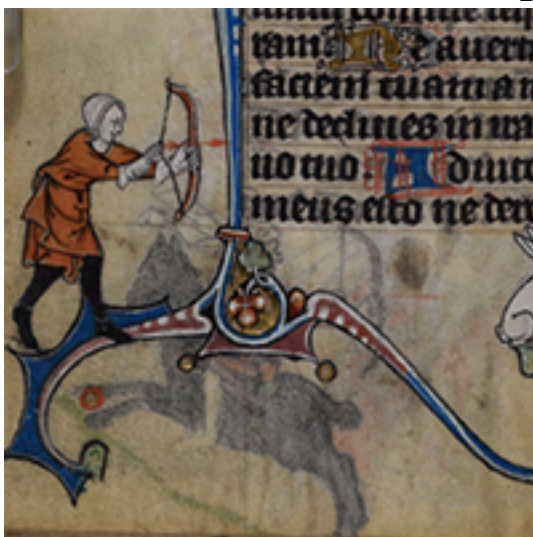 ram Ne auert
faciem tuam a
ne declines in ira
uo tuo Adiuto
meus esto ne dere